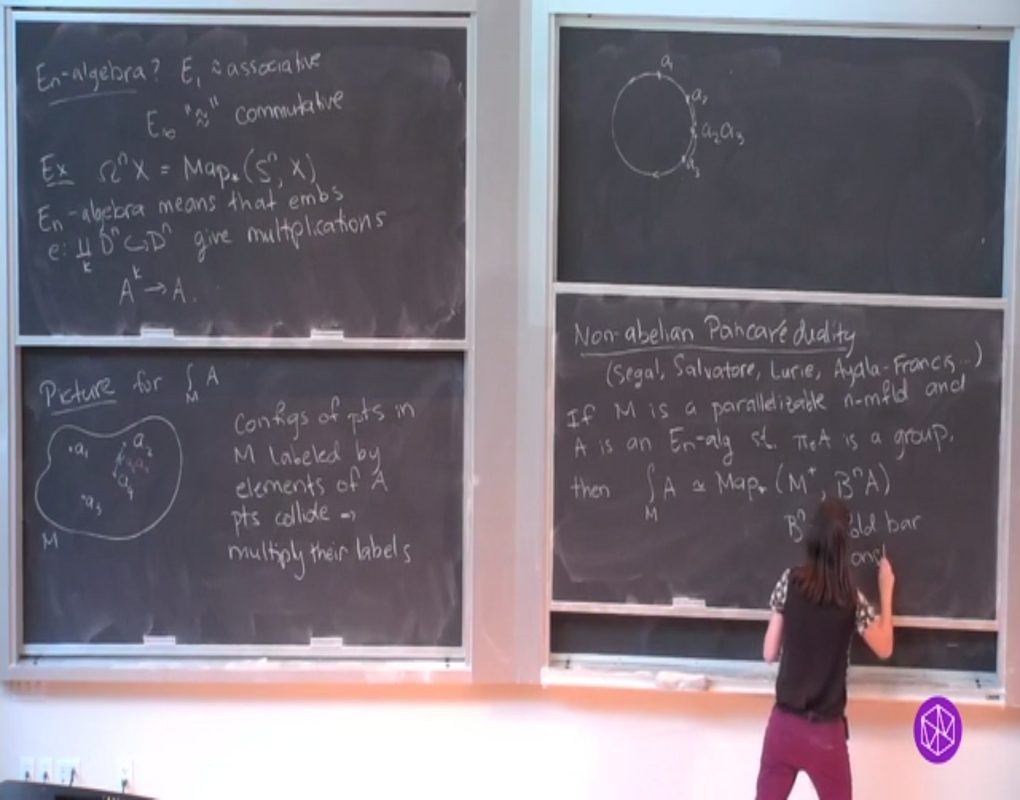 En-algebra? E₁ ≈ associative
E∞ "≈" commutative
Ex ΩⁿX = Map*(Sⁿ, X)
En-algebra means that embs
e: ∐ₖ Dⁿ ↪ Dⁿ give multiplications
Aᵏ → A.
Picture for ∫_M A
a₁
a₂
a₄
a₃
M
Configs of pts in
M labeled by
elements of A
pts collide ⇒
multiply their labels
a₁
a₂
a₂a₃
a₃
Non-abelian Poincaré duality
(Segal, Salvatore, Lurie, Ayala-Francis...)
If M is a parallelizable n-mfld and
A is an En-alg st. π₀A is a group,
then ∫_M A ≃ Map*(M⁺, BⁿA)
Bⁿ old bar